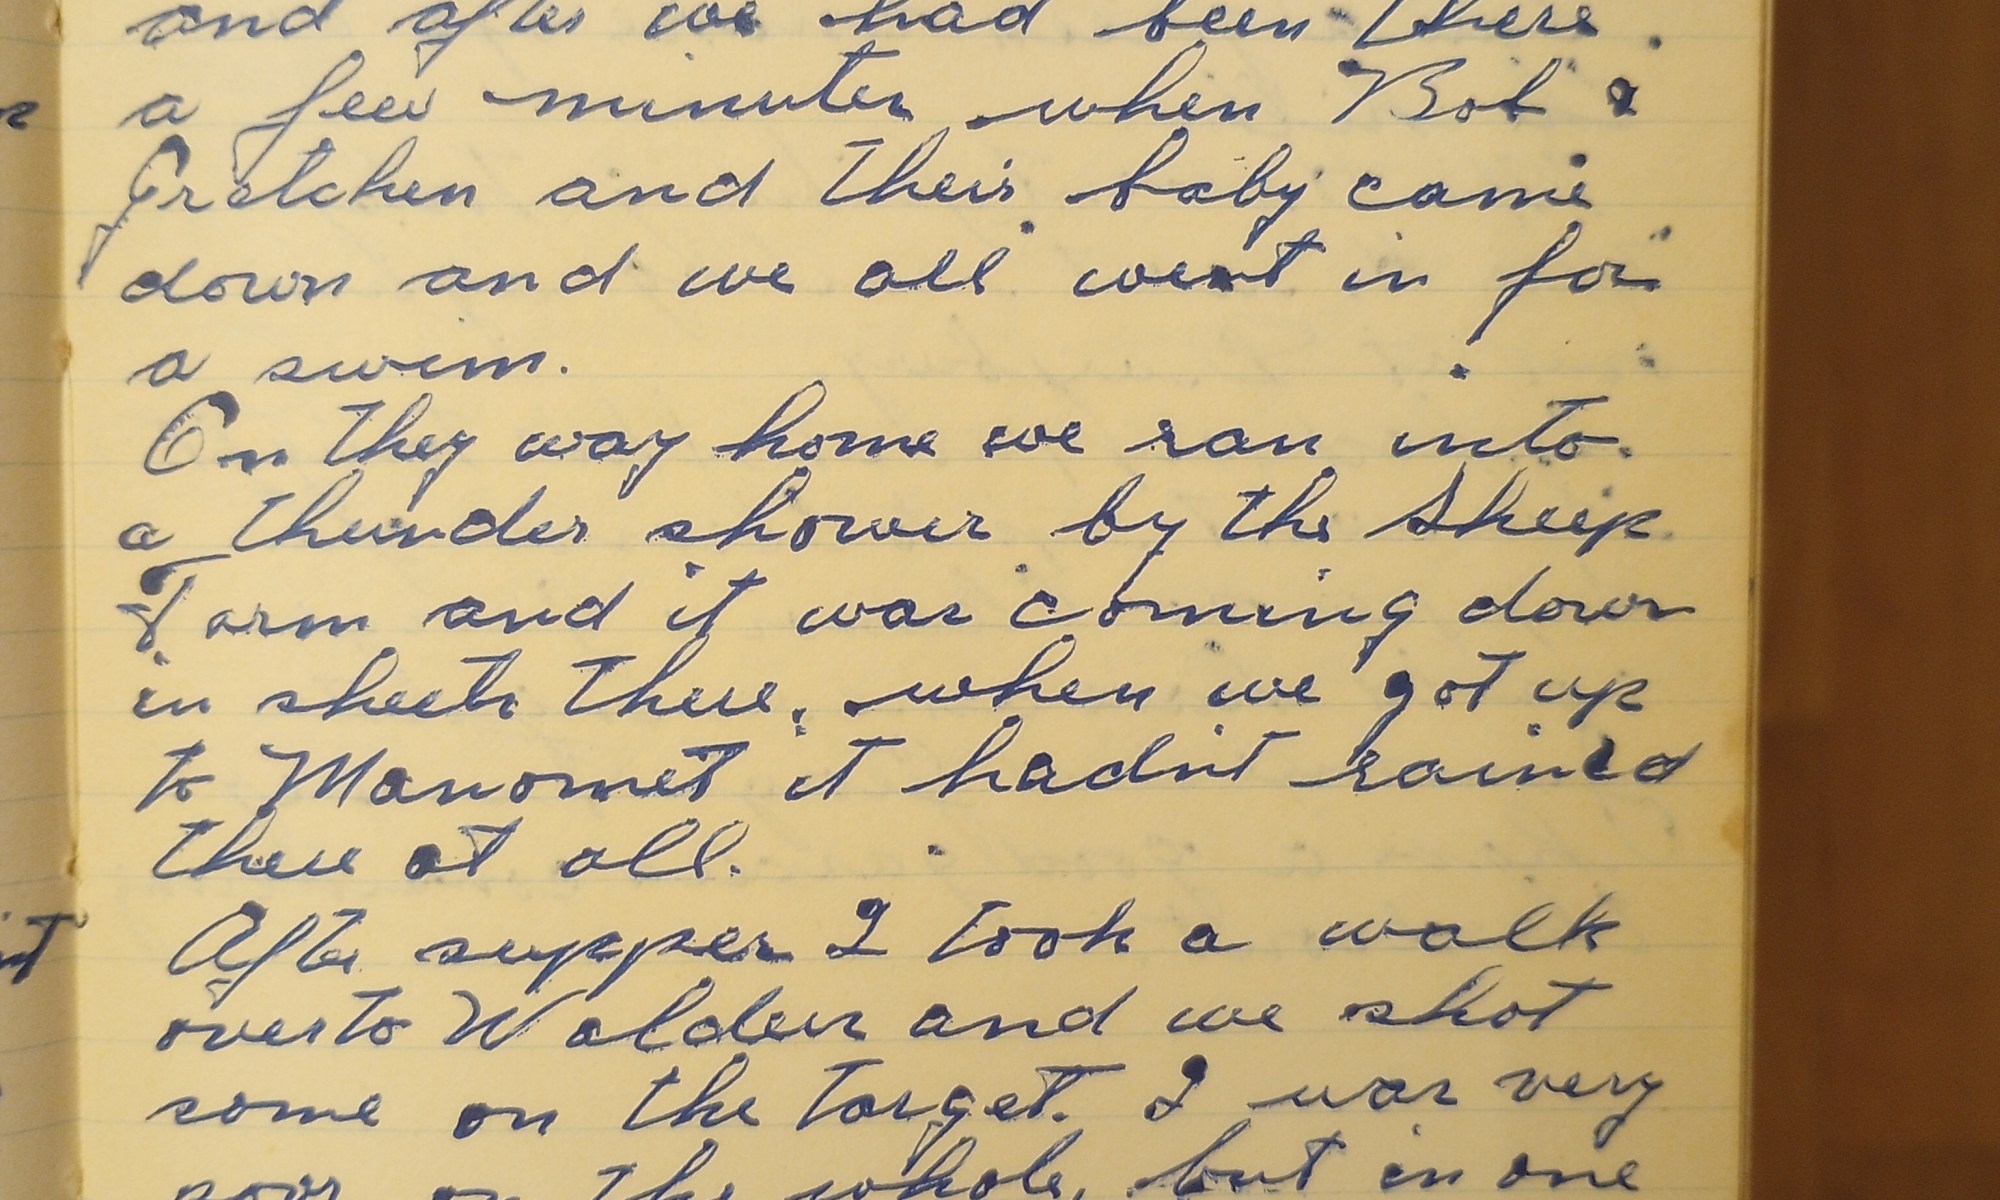 and after we had been there
a few minutes when Bob &
Gretchen and their baby came
down and we all went in for
a swim.
On they way home we ran into
a thunder shower by the Sheep
Farm and it was coming down
in sheets there, when we got up
to Manomet it hadn't rained
there at all.
After supper I took a walk
over to Walden and we shot
some on the target. I was very
poor on the whole, but in one